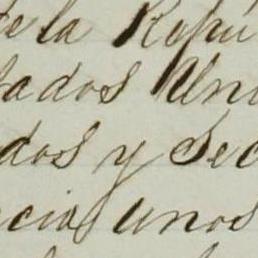 de la Repú
tados Uni
dos y Sec
ncia unos